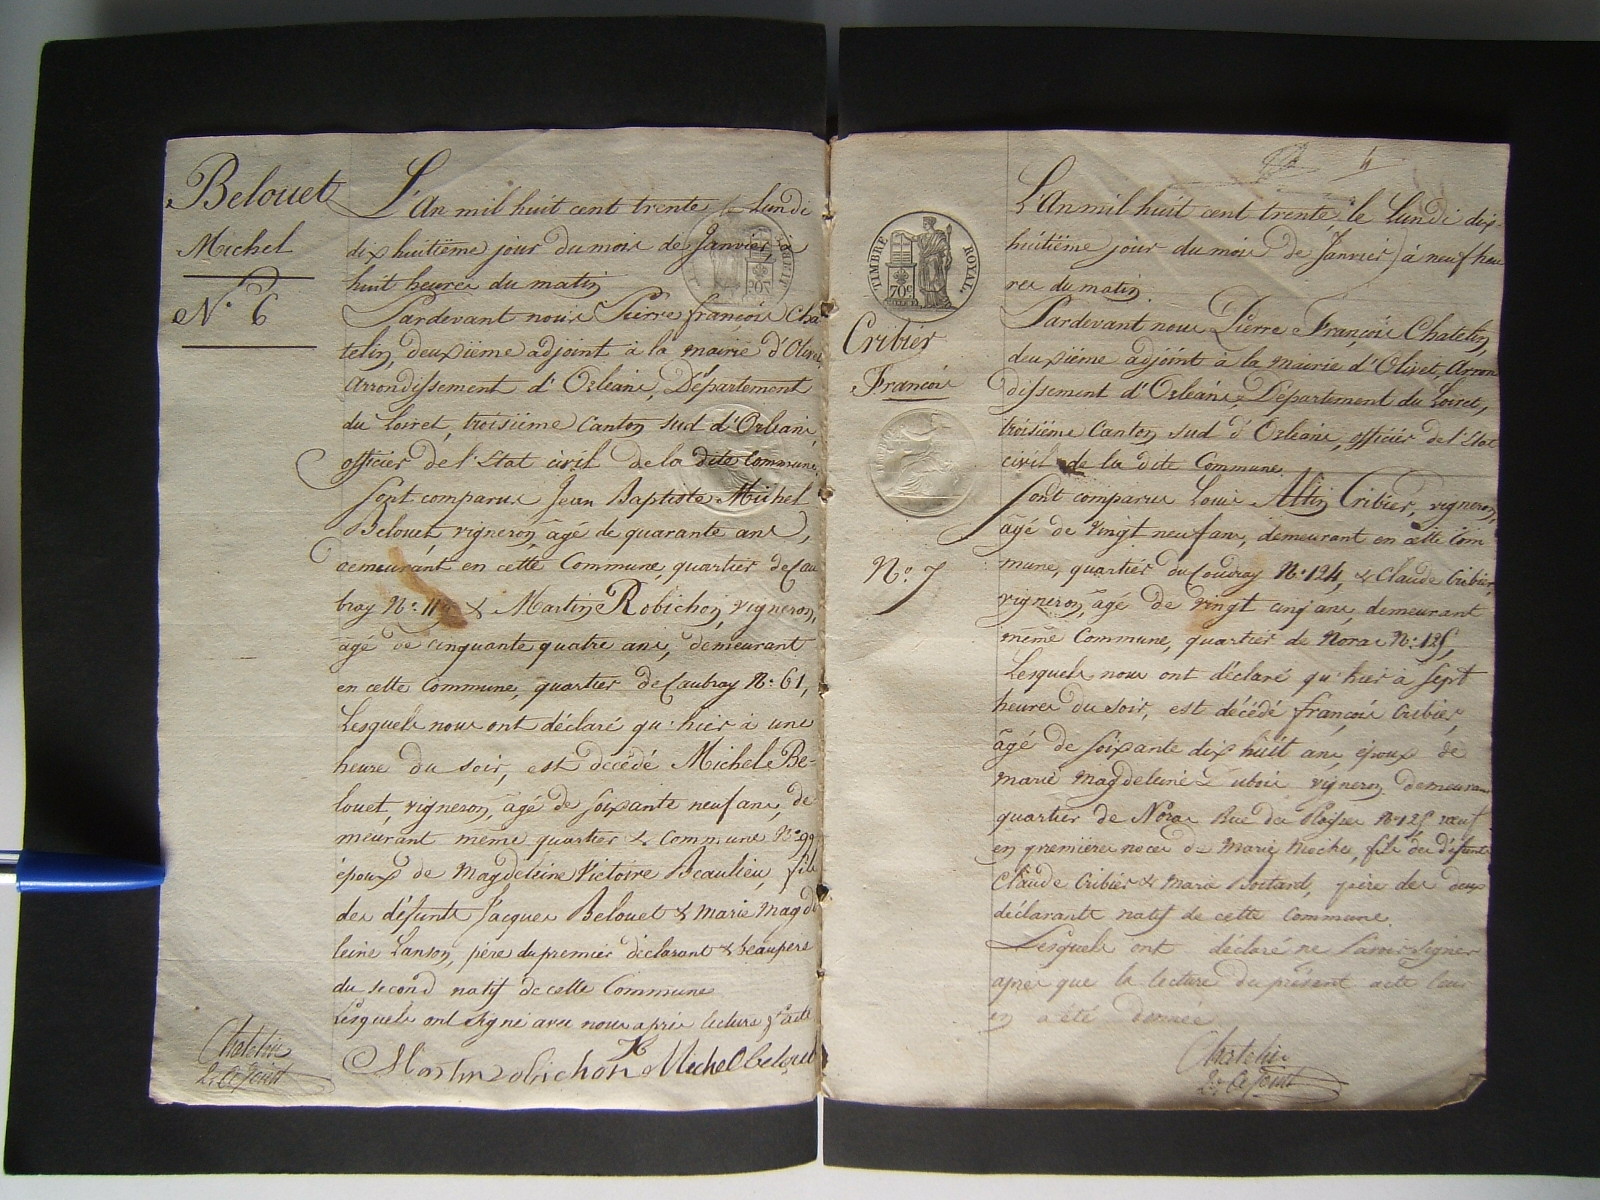 Belouet
Michel
N.° 6
L'An mil huit cent trente le Lundi
dix huitiëme jour du mois de Janvier à
huit heures du matin
Pardevant nous Pierre françois Cha
telin, deuxiëme adjoint à la mairie d'Olivet,
Arrondissement d'Orléans, Département
du Loiret, troisiëme Canton sud d'Orléans,
officier de l'Etat civil de la dite Commune.
Sont comparus Jean Baptiste Michel
Belouet, vigneron, âgé de quarante ans,
demeurant en cette Commune, quartier de Cau
bray N.° & Martin Robichon, vigneron,
âgé de cinquante quatre ans, demeurant
en cette Commune, quartier de Caubray N.° 61,
Lesquels nous ont déclaré qu'hier à une
heure du soir, est décédé Michel Be-
louet, vigneron, âgé de soixante neuf ans, de
meurant même quartier & Commune N.° 99
époux de Magdeleine Victoire Beaulieu, fils
des défunts Jacques Belouet & Marie Magde
leine Lanson, père du premier déclarant & beaupère
du second natif de cette Commune
Lesquels ont signé avec nous après lecture acte
Martin Robichon Michel belouet
Chatelin
2.e Adjoint
4
TIMBRE ROYAL
70c
Cribier
François
N.° 7
L'An mil huit cent trente, le Lundi dix-
huitiëme jour du mois de Janvier à neuf heu
res du matin.
Pardevant nous Pierre François Chatelin,
deuxiëme adjoint à la mairie d'Olivet, Arron
dissement d'Orléans, Département du Loiret,
troisiëme Canton sud d'Orléans, officier de l'Etat
civil de la dite Commune
Sont comparus Louis Cribier, vigneron,
âgé de vingt neuf ans, demeurant en cette Com
mune, quartier du Coudray N.° 124, & Claude Cribier,
vigneron, âgé de vingt cinq ans, demeurant
même Commune, quartier de Noras N.° 125,
Lesquels nous ont déclaré qu'hier à sept
heures du soir, est décédé françois Cribier,
âgé de soixante dix huit ans, époux de
marie Magdeleine Dubois, vigneron demeurant
quartier de Noras Rue du N.° 125 veuf
en premières noces de Marie, fils des défunts
Claude Cribier & Marie Boitard, père des deux
déclarants natif de cette Commune
Lesquels ont déclaré ne savoir signer
après que la lecture du présent acte leur
en a été donnée
Chatelin
2.e Adjoint